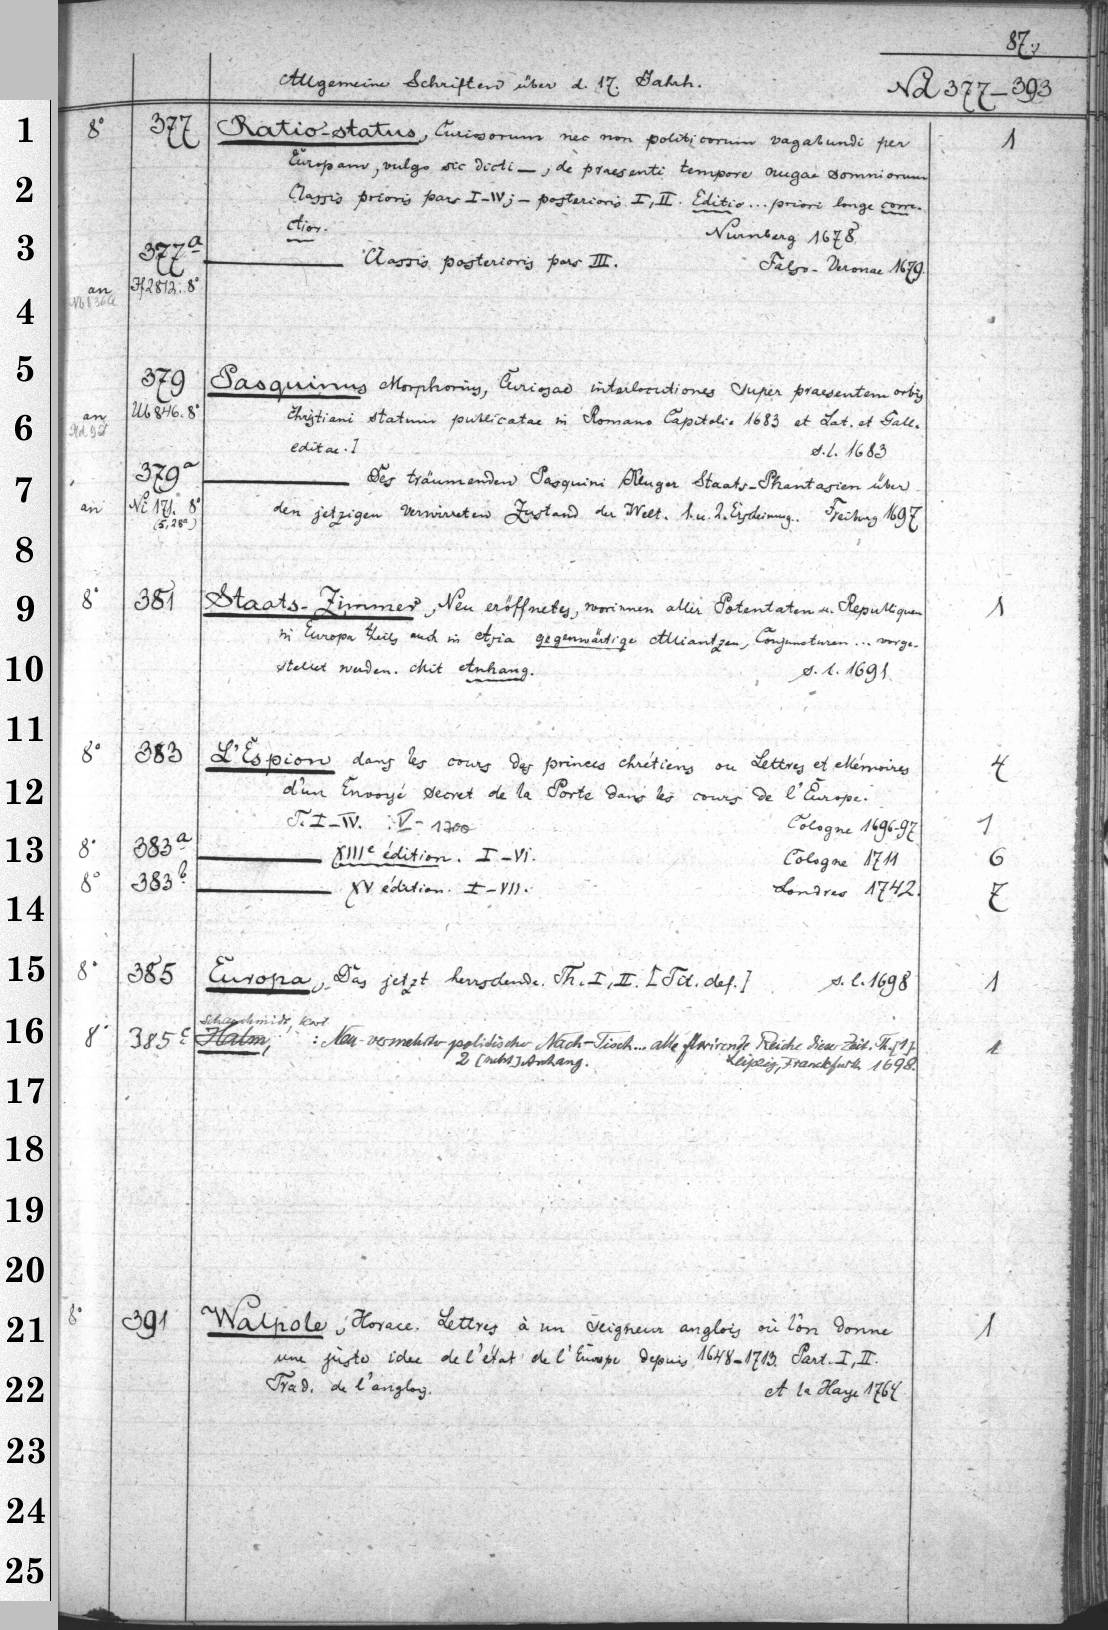 87.
Allgemeine Schriften über d. 17. Jahrh. Nd 377-393
1 8° 377 Ratio-status, Curiosorum nec non politicorum vagabundi per 1
Europam, vulgo sic dicti —, de praesenti tempore nugae somniorum
2 Classis prioris pars I-IV; - posterioris I, II. Editio ... priori longe corre-
ctior. Nürnberg 1678
3 377a ——— Classis posterioris pars III. Falso-Veronae 1679.
an Hf 2812. 8°
4
5 379 Pasquinus Morphorius, Curiosae interlocutiones super praesentem orbis
6 an Ub 846. 8° Christiani statum publicatae in Romano Capitolio 1683 et Lat. et Gall.
editae.] s.l. 1683
7 379a ——— Des träumenden Pasquini kluger Staats-Phantasien über
an Ni 171. 8° den jetzigen verwirreten Zustand der Welt. 1. u. 2. Erscheinung. Freiburg 1697
(5,28a)
8
9 8° 381 Staats-Zimmer, Neu eröffnetes, worinnen aller Potentaten u. Republiquen 1
in Europa theils auch in Asia gegenwärtige Alliantzen, Conjuncturen ... vorge-
10 stellet werden. Mit Anhang. s. l. 1691
11
8° 383 L'Espion dans les cours des princes chrétiens ou Lettres et Mémoires 4
12 d'un Envoyé secret de la Porte dans les cours de l'Europe.
T. I-IV. : V- 1700 Cologne 1696-97 1
13 8° 383a ——— XIIIe édition. I-VI. Cologne 1711 6
8° 383b ——— XV édition. I-VII. Londres 1742. 7
14
15 8° 385 Europa, Das jetzt herrschende. Th. I, II. [Tit. def.] s. l. 1698 1
Schaeschmidt, Karl
16 8° 385c Halm, : Neu-vermehrter politischer Nach-Tisch... alle florirende Reiche dieser Zeit. Th. [1]. 1
2 [nebst] Anhang. Leipzig, Franckfurth 1698.
17
18
19
20
21 8° 391 Walpole, Horace. Lettres à un seigneur anglois où l'on donne 1
une juste idee de l'état de l'Europe depuis 1648-1713. Part. I, II.
22 Trad. de l'anglois. A la Haye 1764
23
24
25